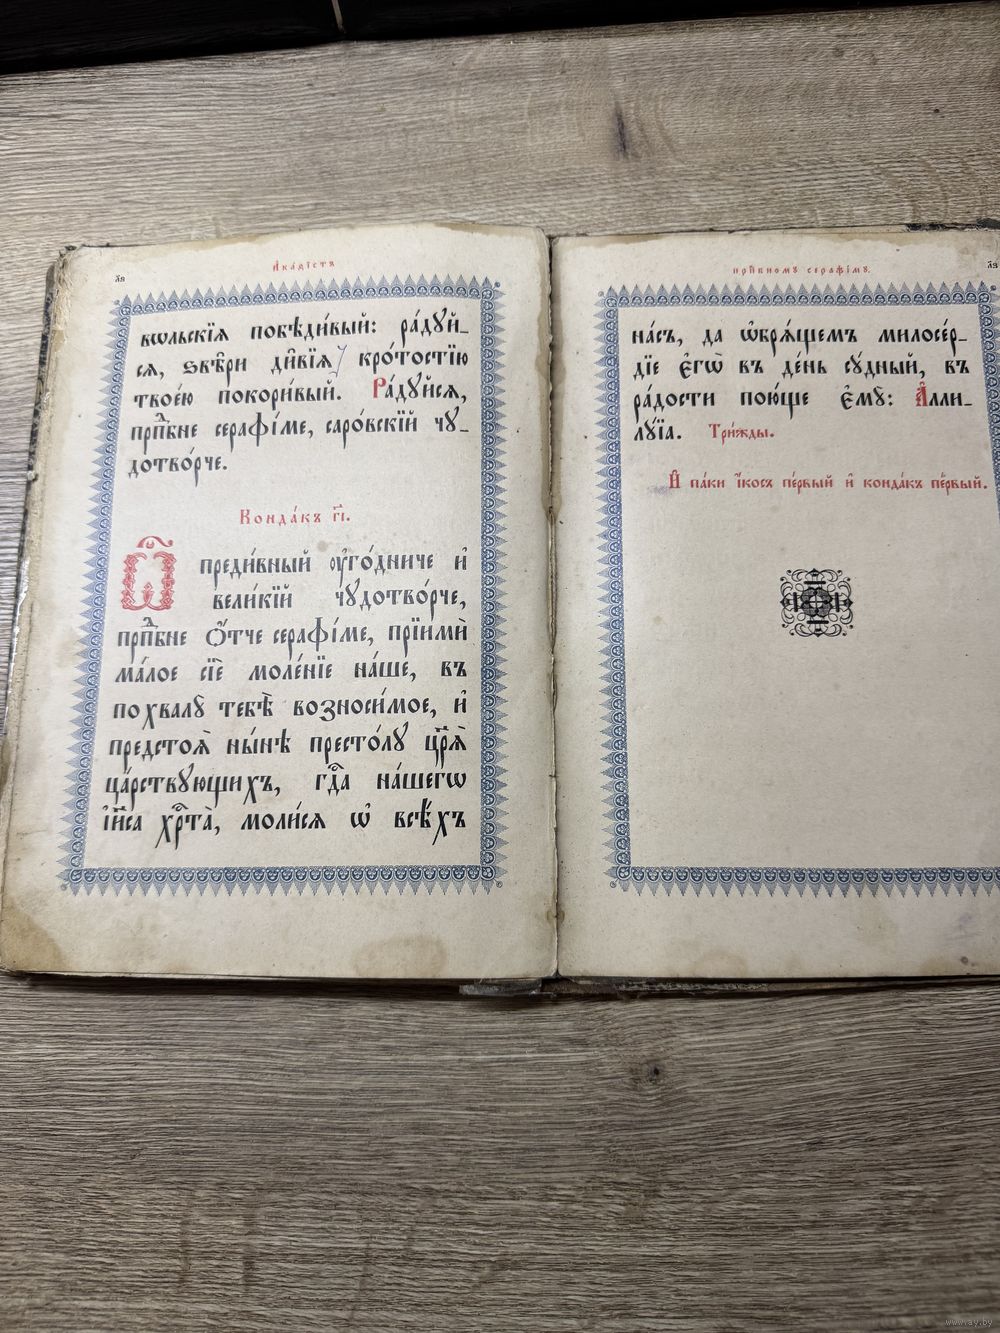 Акаѳістъ
лв
вѡльскїѧ побѣди́вый: ра́дꙋй_
сѧ, ѕвѣ̑ри ди̑вїѧ кро́тостїю
твое́ю покори́вый. Ра́дꙋйсѧ,
прпⷣбне серафі́ме, саро́вскїй чꙋ_
дотво́рче.
Конда́къ г҃і.
Ѽ преди́вный ᲂу҆го́дниче и҆
вели́кїй чꙋдотво́рче,
прпⷣбне ѻ҆́тче серафі́ме, прїимѝ
ма́лое сїѐ моле́нїе на́ше, въ
похвалꙋ̀ тебѣ̀ возноси́мое, и҆
предстоѧ̀ ны́нѣ престо́лꙋ цр҃ѧ̀
ца́рствꙋющихъ, гдⷭ҇а на́шегѡ
і҆и҃са хрⷭ҇та̀, моли́сѧ ѡ҆ всѣ́хъ
прпⷣбномꙋ серафімꙋ.
лг
на́съ, да ѡ҆брѧ́щемъ милосе́р_
дїе є҆гѡ̀ въ де́нь сꙋ́дный, въ
ра́дости пою́ще є҆мꙋ̀: А҆лли_
лꙋ́їа. Три́жды.
И҆ па́ки і҆́косъ пе́рвый и҆ конда́къ пе́рвый.
www.ay.by